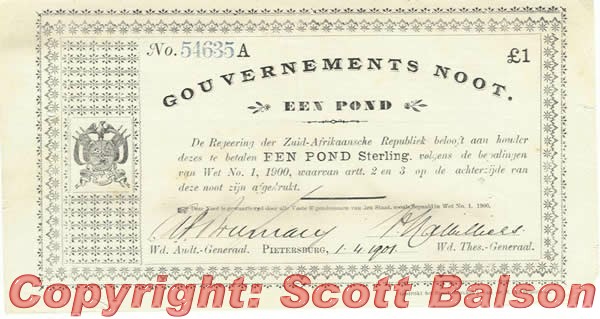 No. 54635 A £1
GOUVERNEMENTS NOOT.
EEN POND
De Regeering der Zuid-Afrikaansche Republiek belooft aan houder
dezes te betalen FEN POND Sterling. volgens de bepalingen
van Wet No. 1, 1900, waarvan artt. 2 en 3 op de achterzijde van
deze noot zijn afgedrukt.
Deze Noot is gewaarborgd door alle Vaste Eigendommen van den Staat, zooals bepaald in Wet No. 1. 1900.
Wd. Audt.-Generaal. PIETERSBURG, 1.4.1901 Wd. Thes.-Generaal.
Copyright: Scott Balson